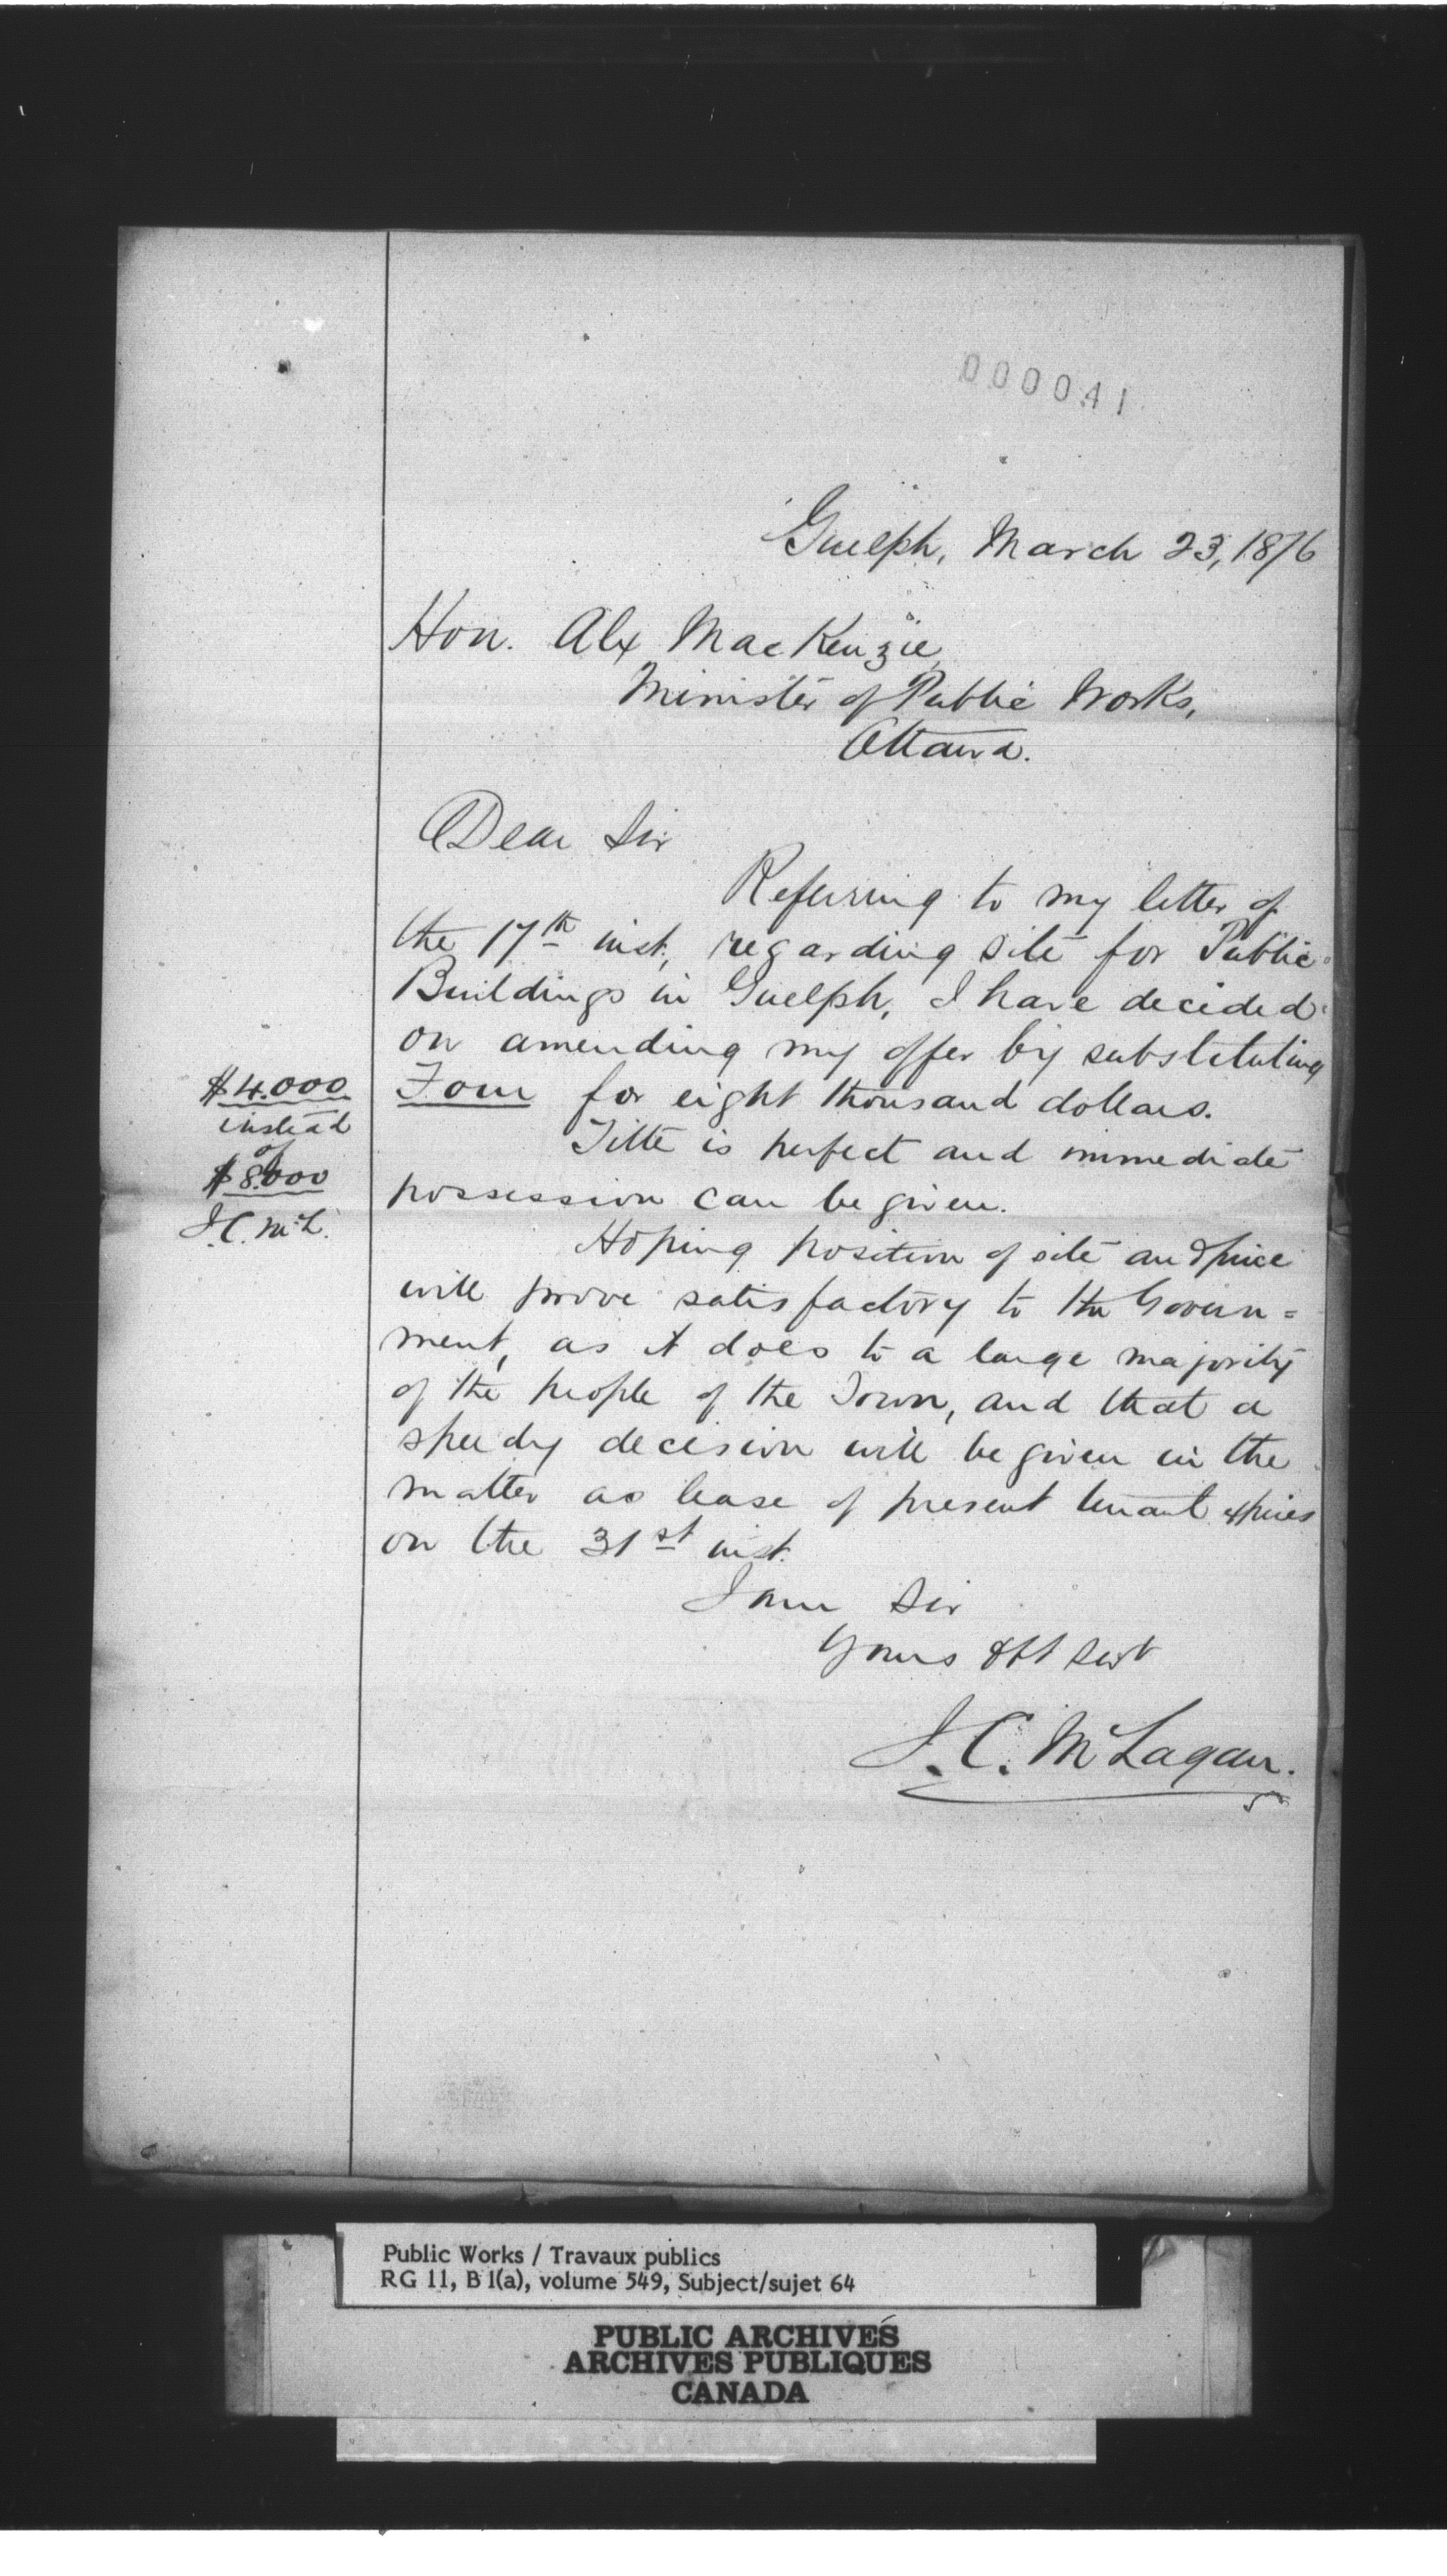 000041
Guelph, March 23, 1876
Hon. Alx MacKenzie,
Minister of Public Works,
Ottawa.
Dear Sir
Referring to my letter of
the 17th inst, regarding site for Public
Buildings in Guelph, I have decided
on amending my offer by substituting
Four for eight thousand dollars.
$4.000
instead
of
$8.000
J.C. McL.
Title is perfect and immediate
possession can be given.
Hoping position of site and price
will prove satisfactory to the Govern=
ment, as it does to a large majority
of the people of the Town, and that a
speedy decision will be given in the
matter as lease of present tenant expires
on the 31st inst.
I am Sir
Yours Obt Servt
J. C. McLagan.
Public Works / Travaux publics
RG 11, B 1(a), volume 549, Subject/sujet 64
PUBLIC ARCHIVES
ARCHIVES PUBLIQUES
CANADA